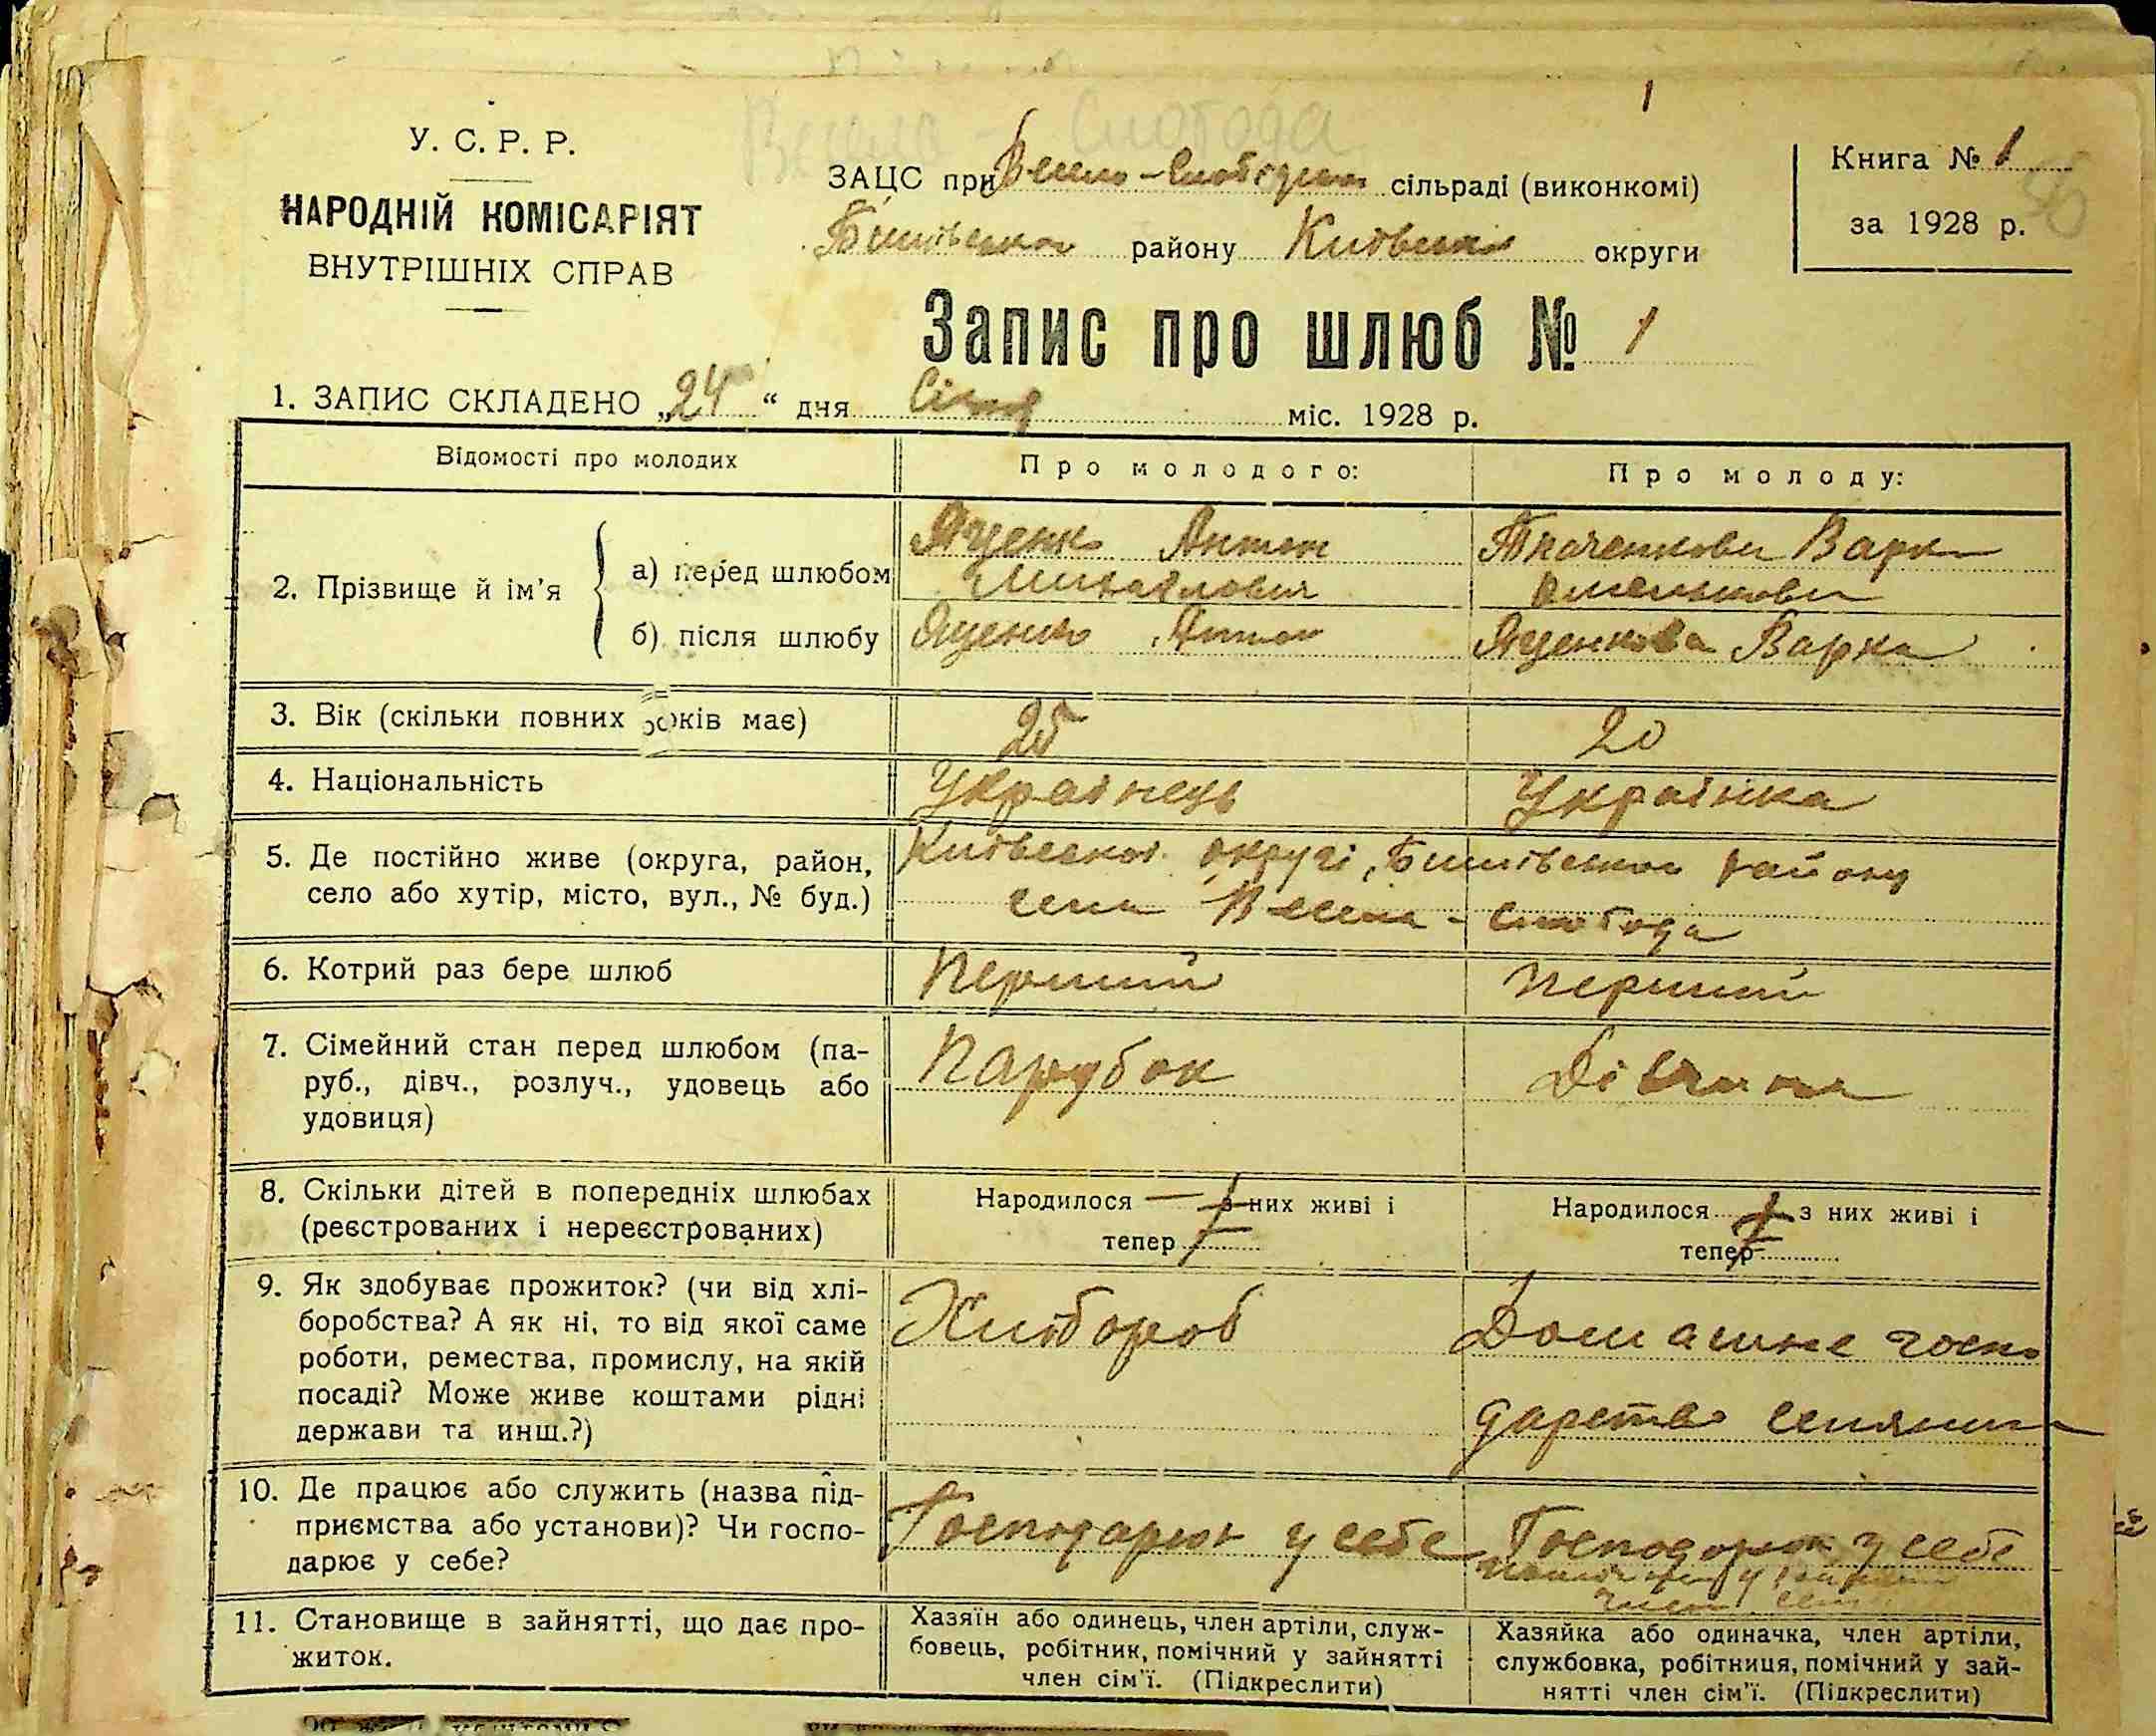 Весела - Слобода
1
У. С. Р. Р.
НАРОДНІЙ КОМІСАРІЯТ
ВНУТРІШНІХ СПРАВ
ЗАЦС при Весело-Слобідській сільраді (виконкомі)
Бишівського району Київської округи
Книга № 1
за 1928 р.
Запис про шлюб № 1
1. ЗАПИС СКЛАДЕНО „24“ дня Січня міс. 1928 р.
Відомості про молодих
Про молодого:
Про молоду:
2. Прізвище й ім'я
а) перед шлюбом
Яценко Антон
Михайлович
Ткаченкова Варка
б) після шлюбу
Яценко Антон
Яценкова Варка
3. Вік (скільки повних років має)
25
20
4. Національність
Українець
Українка
5. Де постійно живе (округа, район,
село або хутір, місто, вул., № буд.)
Київської округі, Бишівського району
села Весела - Слобода
6. Котрий раз бере шлюб
Перший
Перший
7. Сімейний стан перед шлюбом (па-
руб., дівч., розлуч., удовець або
удовиця)
Парубок
Дівчина
8. Скільки дітей в попередніх шлюбах
(реєстрованих і нереєстрованих)
Народилося — з них живі і
тепер
Народилося з них живі і
тепер
9. Як здобуває прожиток? (чи від хлі-
боробства? А як ні, то від якої саме
роботи, ремества, промислу, на якій
посаді? Може живе коштами рідні
держави та инш.?)
Хлібороб
Домашнє госпо
дарство
10. Де працює або служить (назва під-
приємства або установи)? Чи госпо-
дарює у себе?
Господарює у себе
Господарює у себе
11. Становище в зайнятті, що дає про-
житок.
Хазяїн або одинець, член артіли, служ-
бовець, робітник, помічний у зайнятті
член сім'ї. (Підкреслити)
Хазяйка або одиначка, член артіли,
службовка, робітниця, помічний у зай-
нятті член сім'ї. (Підкреслити)